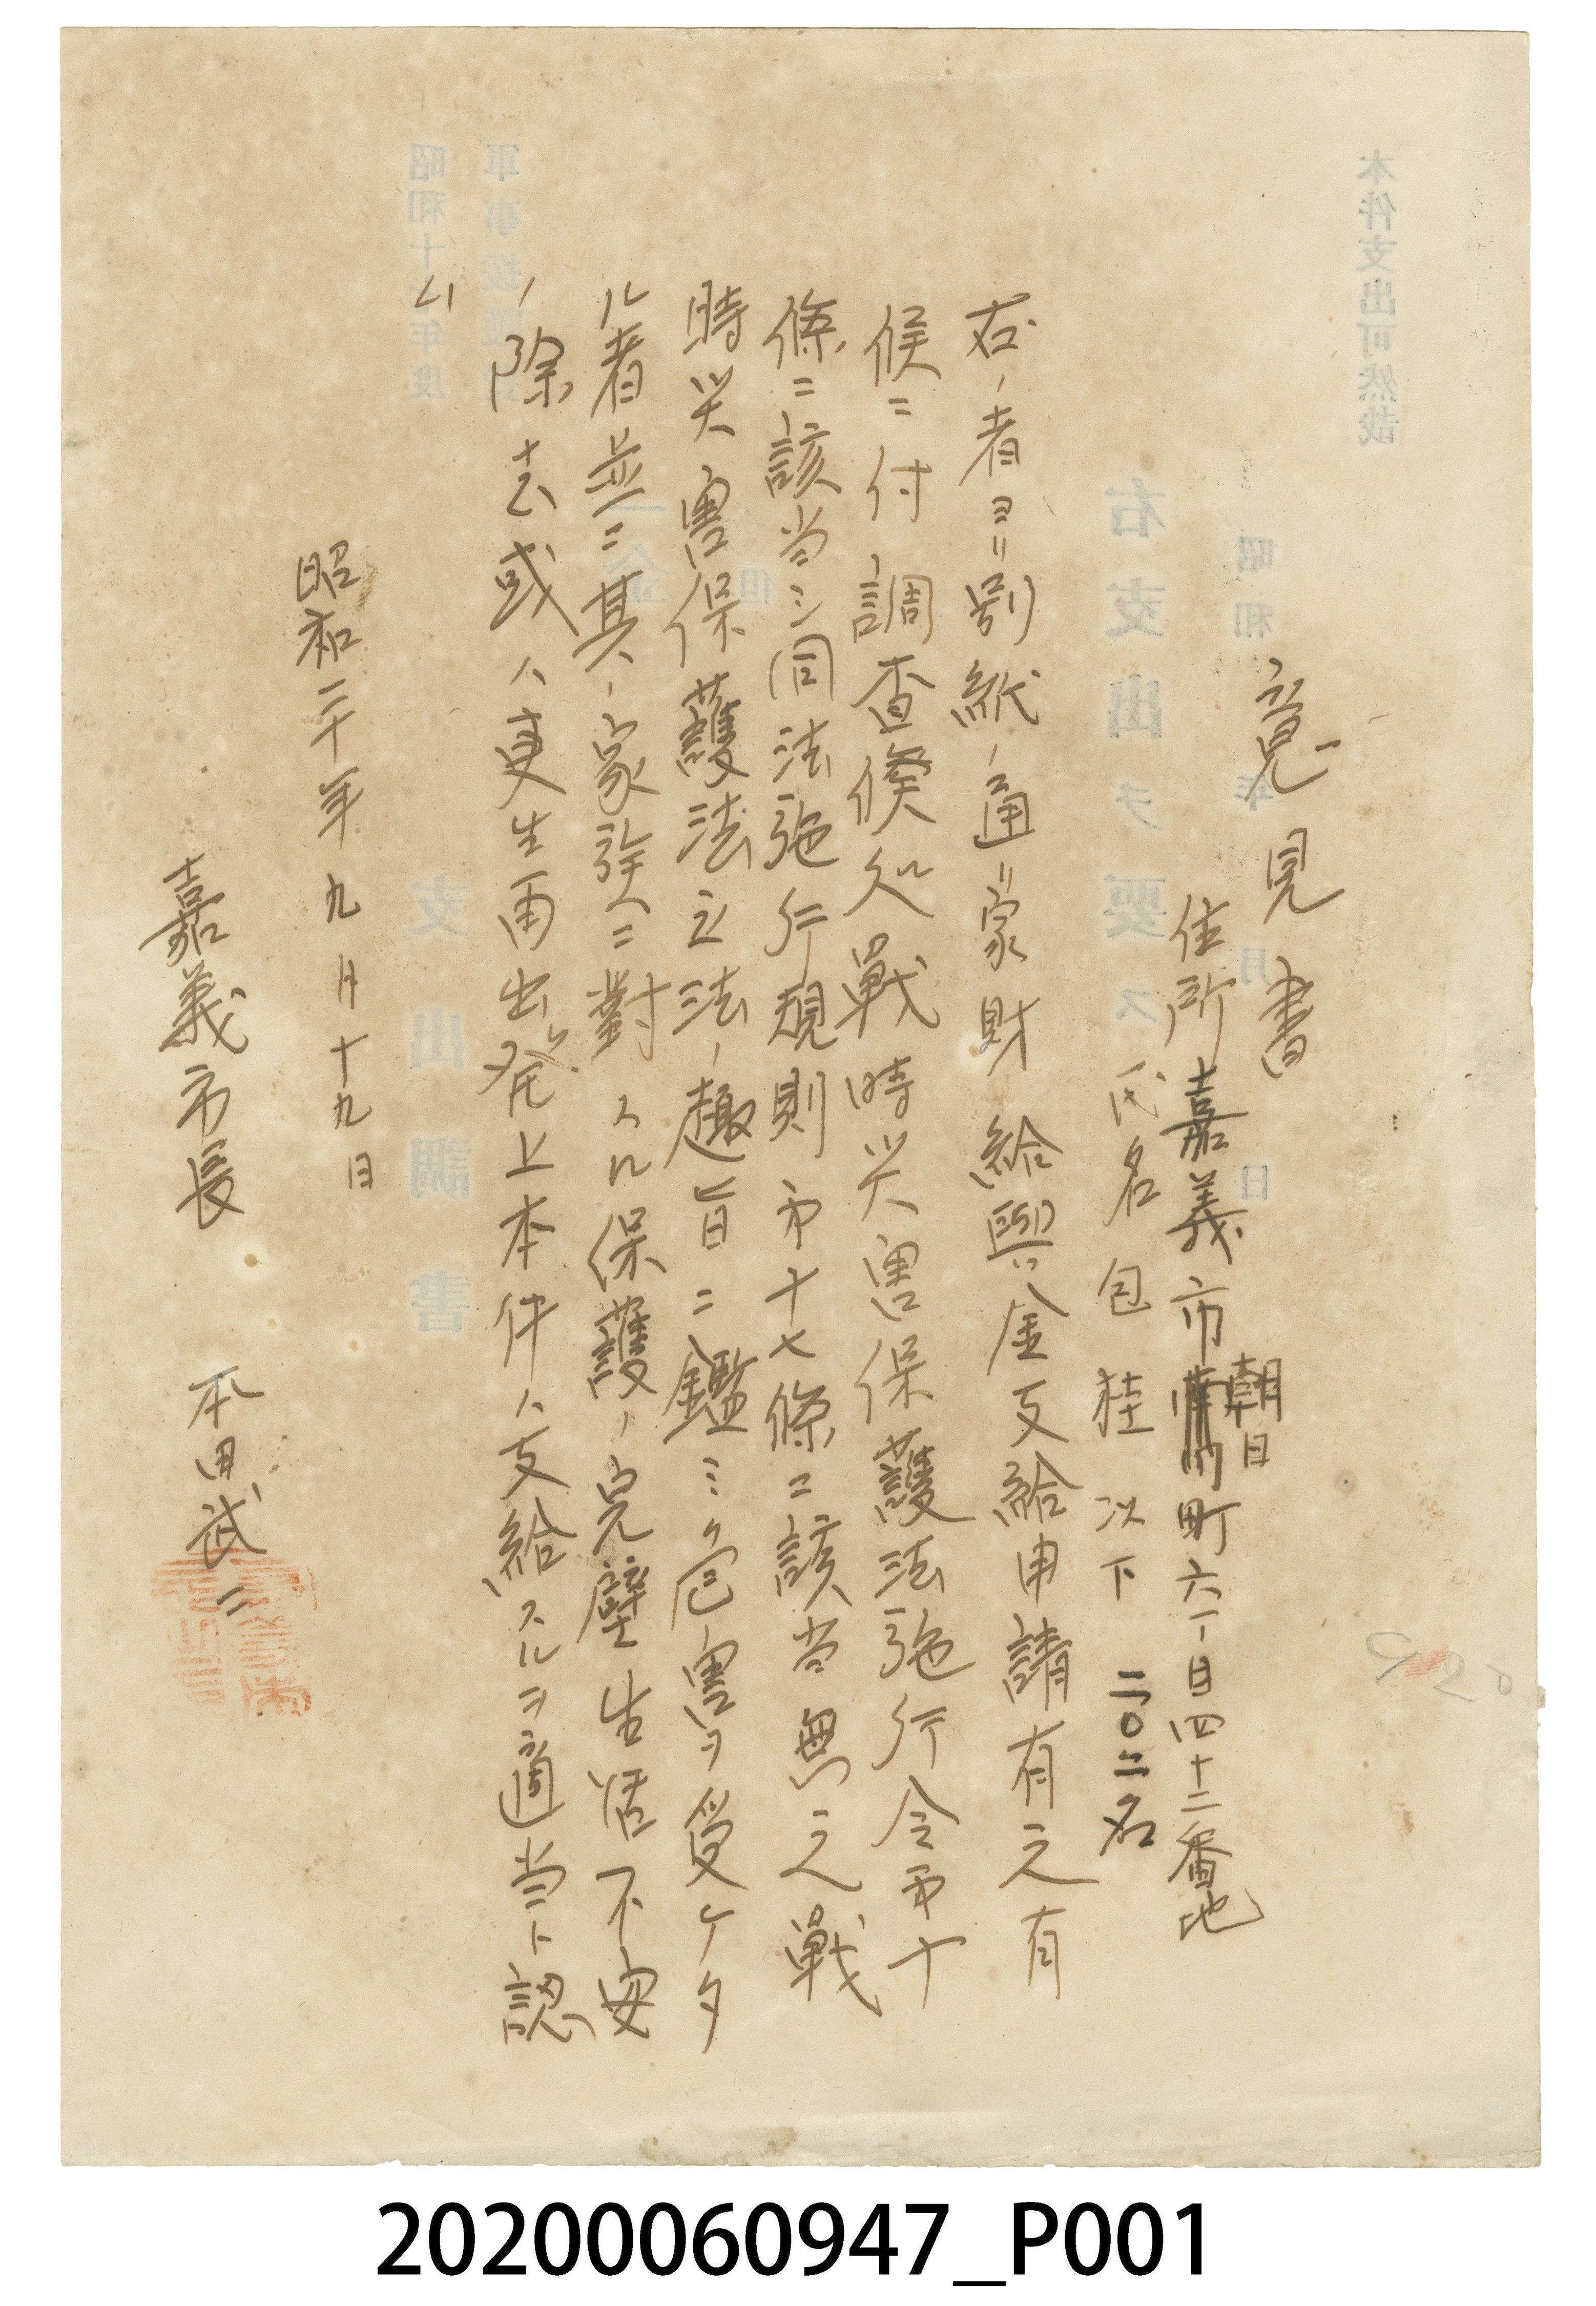 意見書
住所嘉義市朝日町六丁目四十二番地
氏名 包桂以下 二〇二名
右ノ者ヨリ別紙ノ通リ家財給與金支給申請有之有
候ニ付調査候処戰時災害保護法施行令第十
條ニ該当シ同法施行規則第十七條ニ該当無之戰
時災害保護法立法ノ趣旨ニ鑑ミ危害ヲ受ケタ
ル者並ニ其ノ家族ニ對スル保護ノ完璧生活不安
ノ除去或ハ更生再出発上本件ハ支給スルヲ適当ト認
ム
昭和二十年九月十九日
嘉義市長 本田武二
本件支出可然哉
昭和 年 月 日
右支出ヲ要ス
一金
但
昭和十 年度
支出調書
20200060947_P001